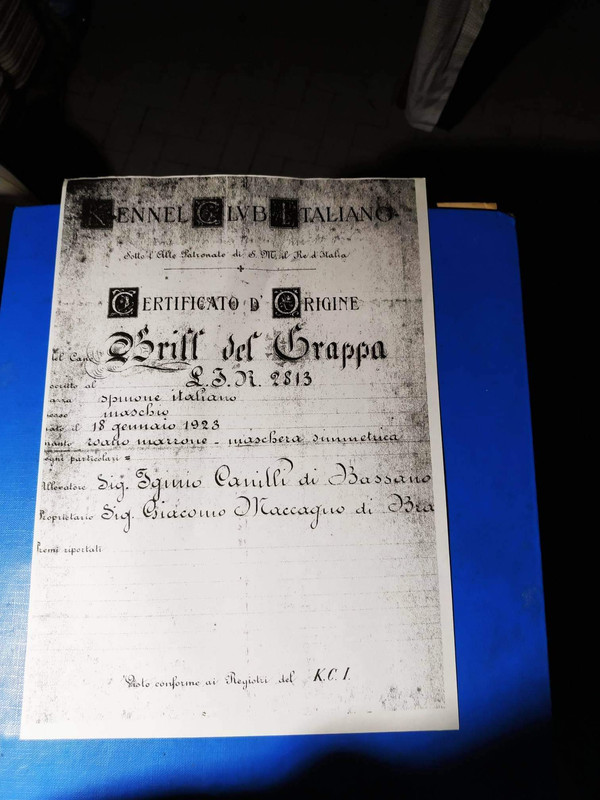 KENNEL CLVB ITALIANO
Sotto l'Alto Patronato di S. M. il Re d'Italia
CERTIFICATO D' ORIGINE
del Cane Brill del Grappa
scritto al L. I. R. 2813
azza spinone italiano
esso maschio
ato il 18 gennaio 1923
manto roano marrone - maschera simmetrica
egni particolari =
Allevatore Sig. Iginio Canilli di Bassano
Proprietario Sig. Giacomo Maccagno di Bra
Premi riportati
Visto conforme ai Registri del K. C. I.